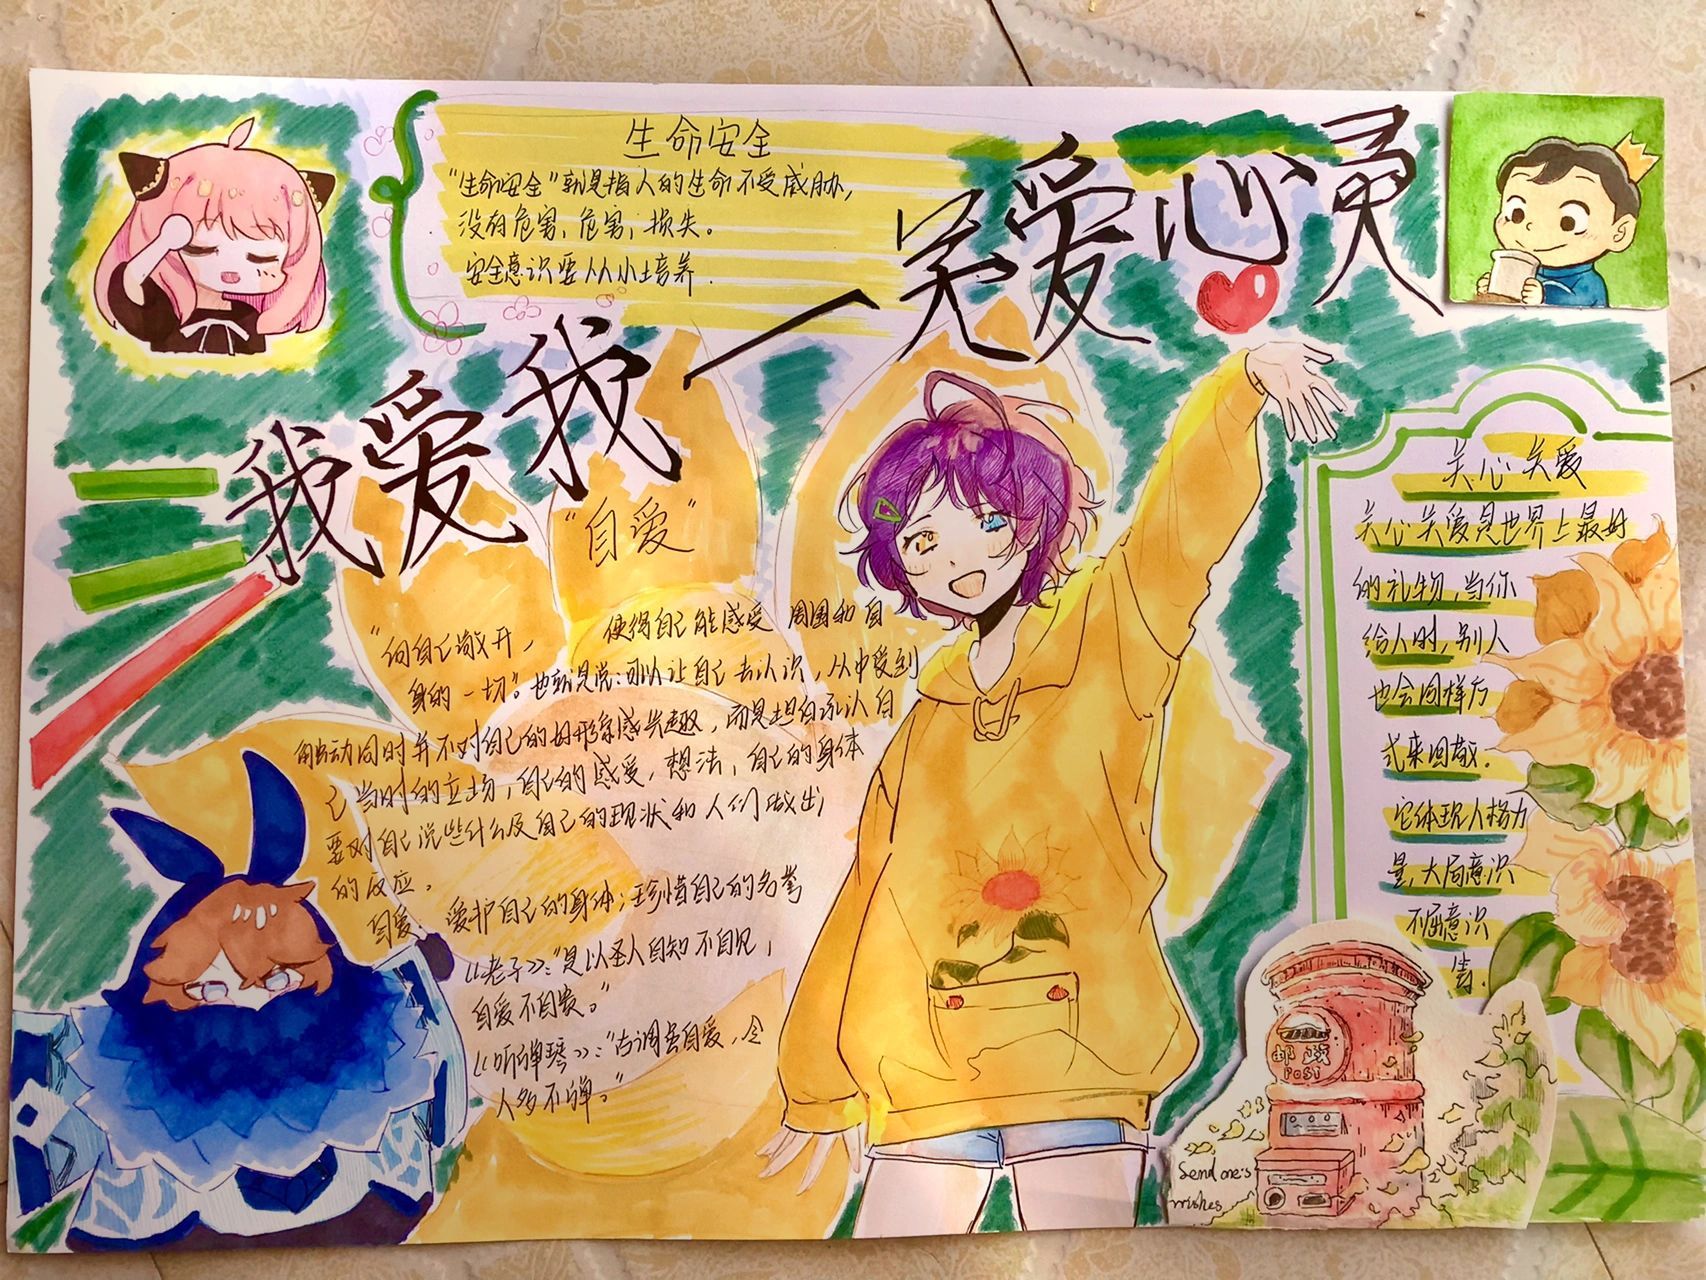 生命安全
"生命安全"就是指人的生命不受威胁,
没有危害,危害;损失。
安全意识要从小培养.
我爱我一关爱心灵
"自爱"
"向自己敞开, 使得自己能感受周围和自
身的一切"。也就是说:可以让自己去认识,从中受到
触动同时并不对自己的好形象感兴趣,而是坦白承认自
己当时的立场,自己的感受,想法,自己的身体
要对自己说些什么及自己的现状和人们做出
的反应。
自爱: 爱护自己的身体;珍惜自己的名誉
《老子》:"是以圣人自知不自见,
自爱不自贵。"
《听弹琴》:"古调虽自爱,令
人多不弹。"
关心关爱
关心关爱是世界上最好
的礼物,当你
给人时,别人
也会同样方
式来回敬.
它体现人格力
量,大局意识
不屈意识
等.
邮政
POST
Send one's
wishes